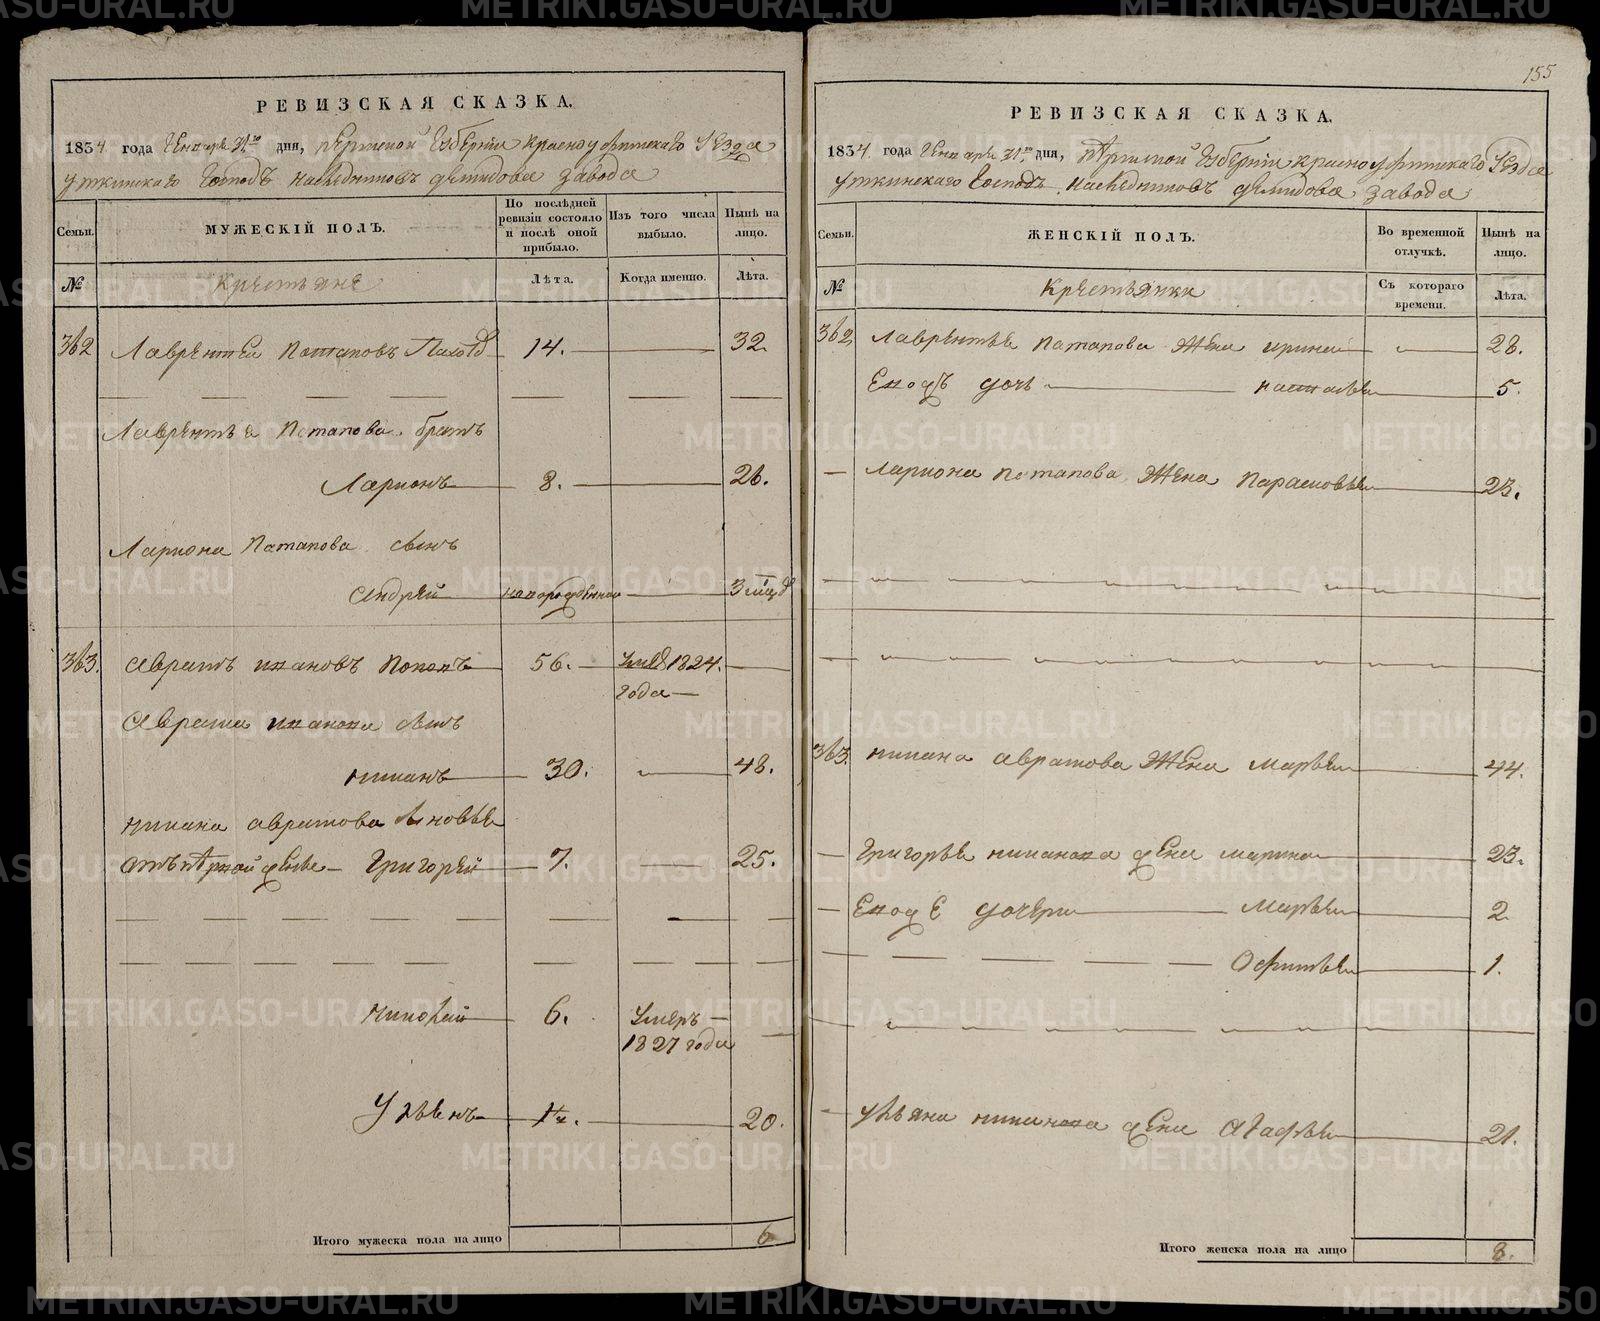 РЕВИЗСКАЯ СКАЗКА.
1834 года Генваря 31го дня, Пермской Губернии Красноуфимского Уезда
Уткинскаго Господъ Наследниковъ Демидова завода
Семьи.
МУЖЕСКІЙ ПОЛЪ.
По послѣдней ревизіи состояло и послѣ оной прибыло.
Изъ того числа выбыло.
Нынѣ на лицо.
№
Крестьяне
Лѣта.
Когда именно.
Лѣта.
362 Лаврентей Потаповъ 14. 32.
Лаврентья Потапова братъ
Ларионъ 8. 26.
Лариона Патапова сынъ
Андрей новорожденной 3
363. Аврамъ Ивановъ Поповъ 56. 1824.
года
Аврама Иванова сынъ
Нифанъ 30. 48.
Аврамова сыновья
отъ первой жены Григорей 7. 25.
Николай 6. Умеръ
1827 года
Ульянъ 20.
Итого мужеска пола на лицо 6
155
РЕВИЗСКАЯ СКАЗКА.
1834 года Генваря 31го дня, Пермской Губернии Красноуфимскаго Уезда
Уткинскаго Господъ Наследниковъ Демидова завода
Семьи.
ЖЕНСКІЙ ПОЛЪ.
Во временной отлучкѣ.
Нынѣ на лицо.
№
Крестьянки
Съ котораго времени.
Лѣта.
362 Лаврентья Патапова жена Ирина 28.
Евод дочь Наталья 5.
Лариона Потапова жена Парасковья 23.
363. Аврамова жена Марья 44.
Григорья жена Марина 23.
Еводе дочери Марья 2
Офимья 1.
Ульяна жена Агафья 21.
Итого женска пола на лицо 8.
METRIKI.GASO-URAL.RU